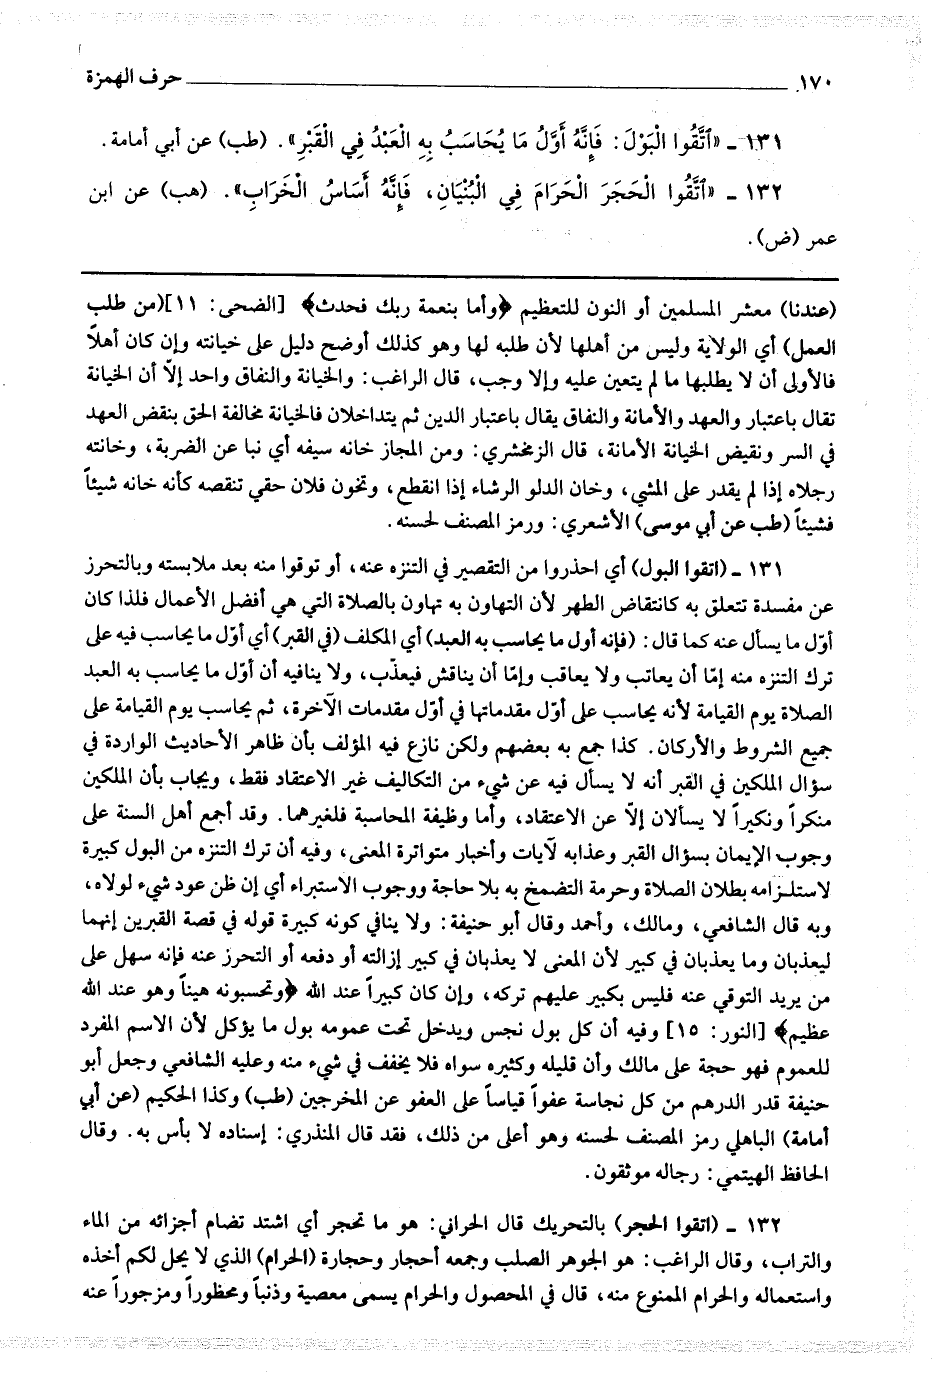 ١٧٠ حرف الهمزة
١٣١ ـ «ٱتَّقُوا الْبَوْلَ: فَإِنَّهُ أَوَّلُ مَا يُحَاسَبُ بِهِ الْعَبْدُ فِي الْقَبْرِ». (طب) عن أبي أمامة.
١٣٢ ـ «ٱتَّقُوا الْحَجَرَ الْحَرَامَ فِي الْبُنْيَانِ، فَإِنَّهُ أَسَاسُ الْخَرَابِ». (هب) عن ابن
عمر (ض).
(عندنا) معشر المسلمين أو النون للتعظيم ﴿وأما بنعمة ربك فحدث﴾ [الضحى: ١١](من طلب
العمل) أي الولاية وليس من أهلها لأن طلبه لها وهو كذلك أوضح دليل على خيانته وإن كان أهلاً
فالأولى أن لا يطلبها ما لم يتعين عليه وإلا وجب، قال الراغب: والخيانة والنفاق واحد إلاّ أن الخيانة
تقال باعتبار والعهد والأمانة والنفاق يقال باعتبار الدين ثم يتداخلان فالخيانة مخالفة الحق بنقض العهد
في السر ونقيض الخيانة الأمانة، قال الزمخشري: ومن المجاز خانه سيفه أي نبا عن الضربة، وخانته
رجلاه إذا لم يقدر على المشي، وخان الدلو الرشاء إذا انقطع، وتخون فلان حقي تنقصه كأنه خانه شيئاً
فشيئاً (طب عن أبي موسى) الأشعري: ورمز المصنف لحسنه.
١٣١ ـ (اتقوا البول) أي احذروا من التقصير في التنزه عنه، أو توقوا منه بعد ملابسته وبالتحرز
عن مفسدة تتعلق به كانتقاض الطهر لأن التهاون به تهاون بالصلاة التي هي أفضل الأعمال فلذا كان
أوّل ما يسأل عنه كما قال: (فإنه أول ما يحاسب به العبد) أي المكلف (في القبر) أي أوّل ما يحاسب فيه على
ترك التنزه منه إمّا أن يعاتب ولا يعاقب وإمّا أن يناقش فيعذّب، ولا ينافيه أن أوّل ما يحاسب به العبد
الصلاة يوم القيامة لأنه يحاسب على أوّل مقدماتها في أوّل مقدمات الآخرة، ثم يحاسب يوم القيامة على
جميع الشروط والأركان. كذا جمع به بعضهم ولكن نازع فيه المؤلف بأن ظاهر الأحاديث الواردة في
سؤال الملكين في القبر أنه لا يسأل فيه عن شيء من التكاليف غير الاعتقاد فقط، ويجاب بأن الملكين
منكراً ونكيراً لا يسألان إلاّ عن الاعتقاد، وأما وظيفة المحاسبة فلغيرهما. وقد أجمع أهل السنة على
وجوب الإيمان بسؤال القبر وعذابه لآيات وأخبار متواترة المعنى، وفيه أن ترك التنزه من البول كبيرة
لاستلزامه بطلان الصلاة وحرمة التضمخ به بلا حاجة ووجوب الاستبراء أي إن ظن عود شيء لولاه،
وبه قال الشافعي، ومالك، وأحمد وقال أبو حنيفة: ولا ينافي كونه كبيرة قوله في قصة القبرين إنهما
ليعذبان وما يعذبان في كبير لأن المعنى لا يعذبان في كبير إزالته أو دفعه أو التحرز عنه فإنه سهل على
من يريد التوقي عنه فليس بكبير عليهم تركه، وإن كان كبيراً عند الله ﴿وتحسبونه هيناً وهو عند الله
عظيم﴾ [النور: ١٥] وفيه أن كل بول نجس ويدخل تحت عمومه بول ما يؤكل لأن الاسم المفرد
للعموم فهو حجة على مالك وأن قليله وكثيره سواه فلا يخفف في شيء منه وعليه الشافعي وجعل أبو
حنيفة قدر الدرهم من كل نجاسة عفواً قياساً على العفو عن المخرجين (طب) وكذا الحكيم (عن أبي
أمامة) الباهلي رمز المصنف لحسنه وهو أعلى من ذلك، فقد قال المنذري: إسناده لا بأس به. وقال
الحافظ الهيتمي: رجاله موثقون.
١٣٢ ـ (اتقوا الحجر) بالتحريك قال الحراني: هو ما تحجر أي اشتد تضام أجزائه من الماء
والتراب، وقال الراغب: هو الجوهر الصلب وجمعه أحجار وحجارة (الحرام) الذي لا يحل لكم أخذه
واستعماله والحرام الممنوع منه، قال في المحصول والحرام يسمى معصية وذنباً ومحظوراً ومزجوراً عنه